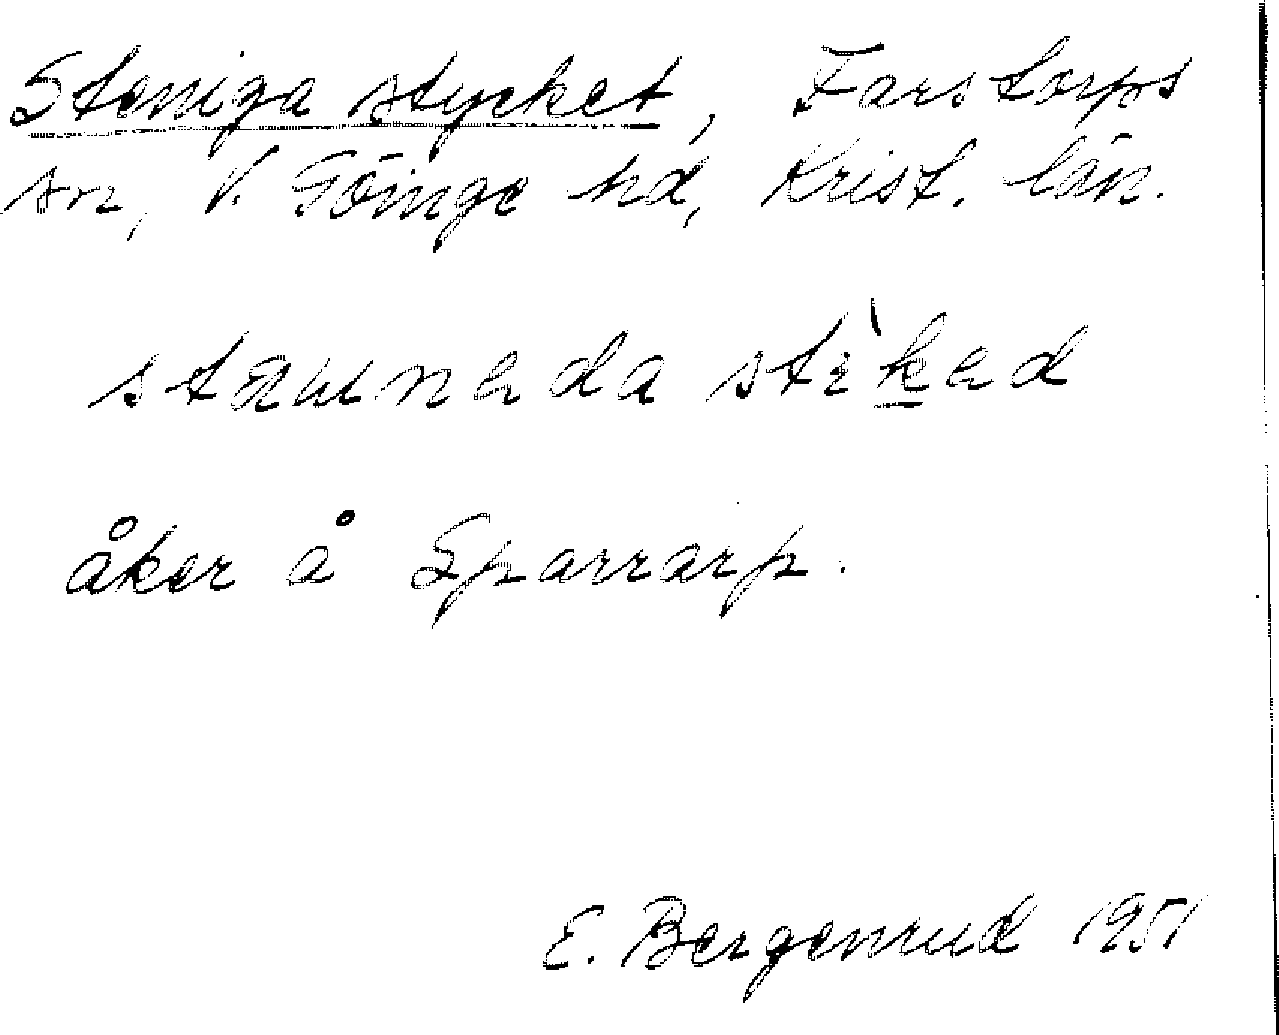 Steniga stycket, Farstorps
sn, V. Göinge hd, Krist. län.
stì̱ked
åker å Sparrarp.
E. Bergenrud 1951